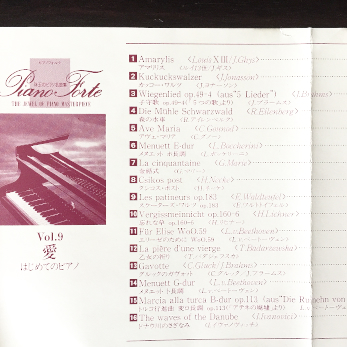 Piano Forte
THE JEWEL OF PIANO MASTERPIECE
Vol.9
愛
はじめてのピアノ
1 Amaryllis <Louis XIII/J.Ghys>
アマリリス
2 Kuckuckswalzer <J.Jonasson>
カッコー・ワルツ <J.ヨナーソン>
3 Wiegenlied op.49-4 (aus"5 Lieder") <J.Brahms>
子守歌 op.49-4 (「5つの歌」より) <J.ブラームス>
4 Die Mühle Schwarzwald <R.Eilenberg>
森の水車 <R.アイレンベルク>
5 Ave Maria <C.Gounod>
アヴェ・マリア <C.グノー>
6 Menuett E-dur <L.Boccherini>
メヌエット ホ長調 <L.ボッケリーニ>
7 La cinquantaine <G.Marie>
金婚式 <G.マリー>
8 Csikos post <H.Necke>
クシコス・ポスト <H.ネッケ>
9 Les patineurs op.183 <E.Waldteufel>
スケーターズ・ワルツ
10 Vergissmeinnicht op.160-6 <H.Lichner>
忘れな草 op.160-6 <H.リヒナー>
11 Für Elise WoO.59 <L.v.Beethoven>
エリーゼのために WoO.59 <L.v.ベートーヴェン>
12 La pière d'une vierge <T.Badarzewska>
乙女の祈り
13 Gavotte <C.Gluck/J.Brahms>
グルックのガヴォット <C.グルック/J.ブラームス>
14 Menuett G-dur <L.v.Beethoven>
メヌエット ト長調 <L.v.ベートーヴェン>
15 Marcia alla turca B-dur op.113 (aus"Die Ruinen von
トルコ行進曲 変ロ長調 op.113(「アテネの廃墟」より) <L.v.ベートーヴェン>
16 The waves of the Danube <J.Ivanovici>
ドナウ川のさざなみ <J.イヴァノヴィッチ>